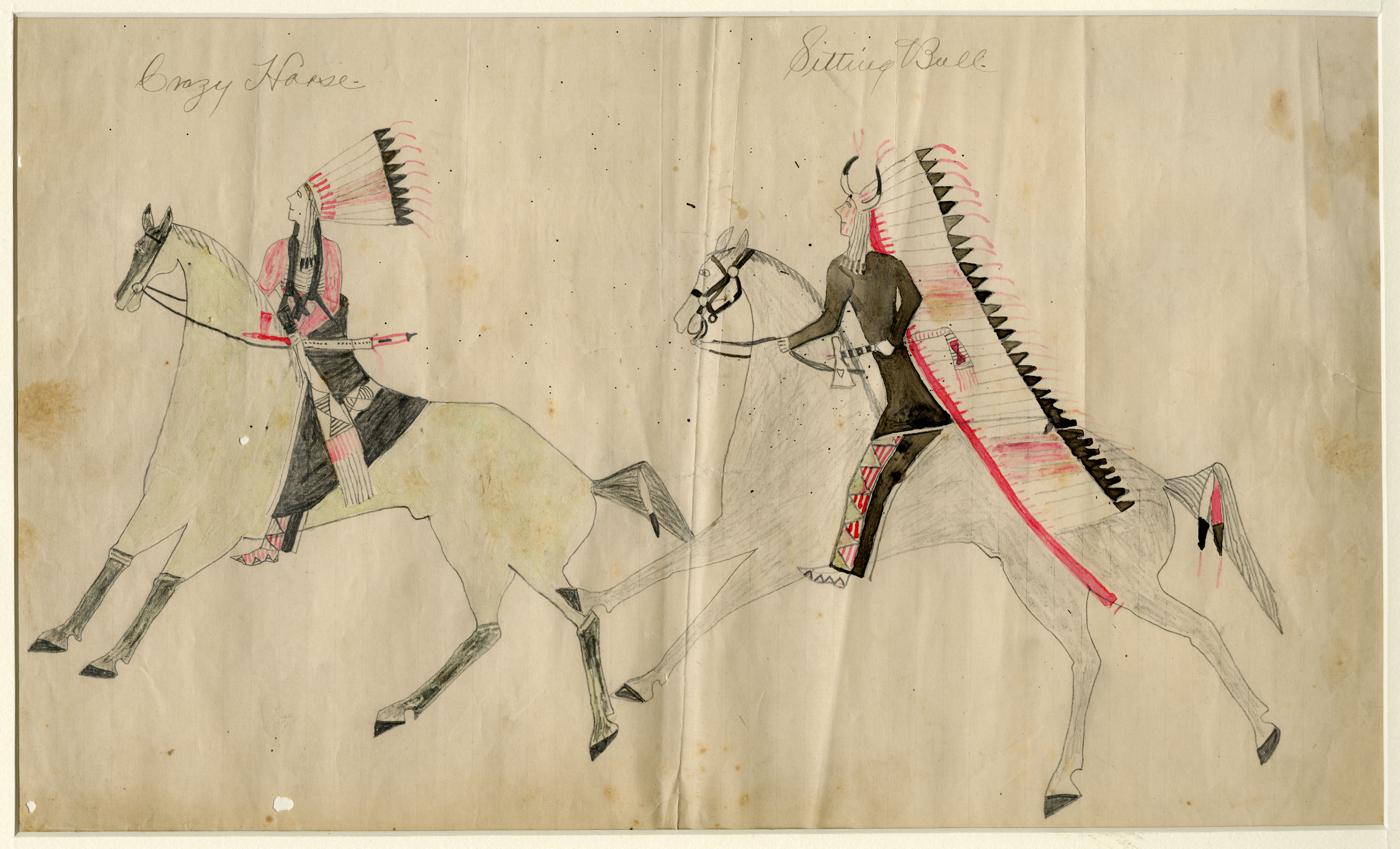 Crazy Horse.
Sitting Bull.